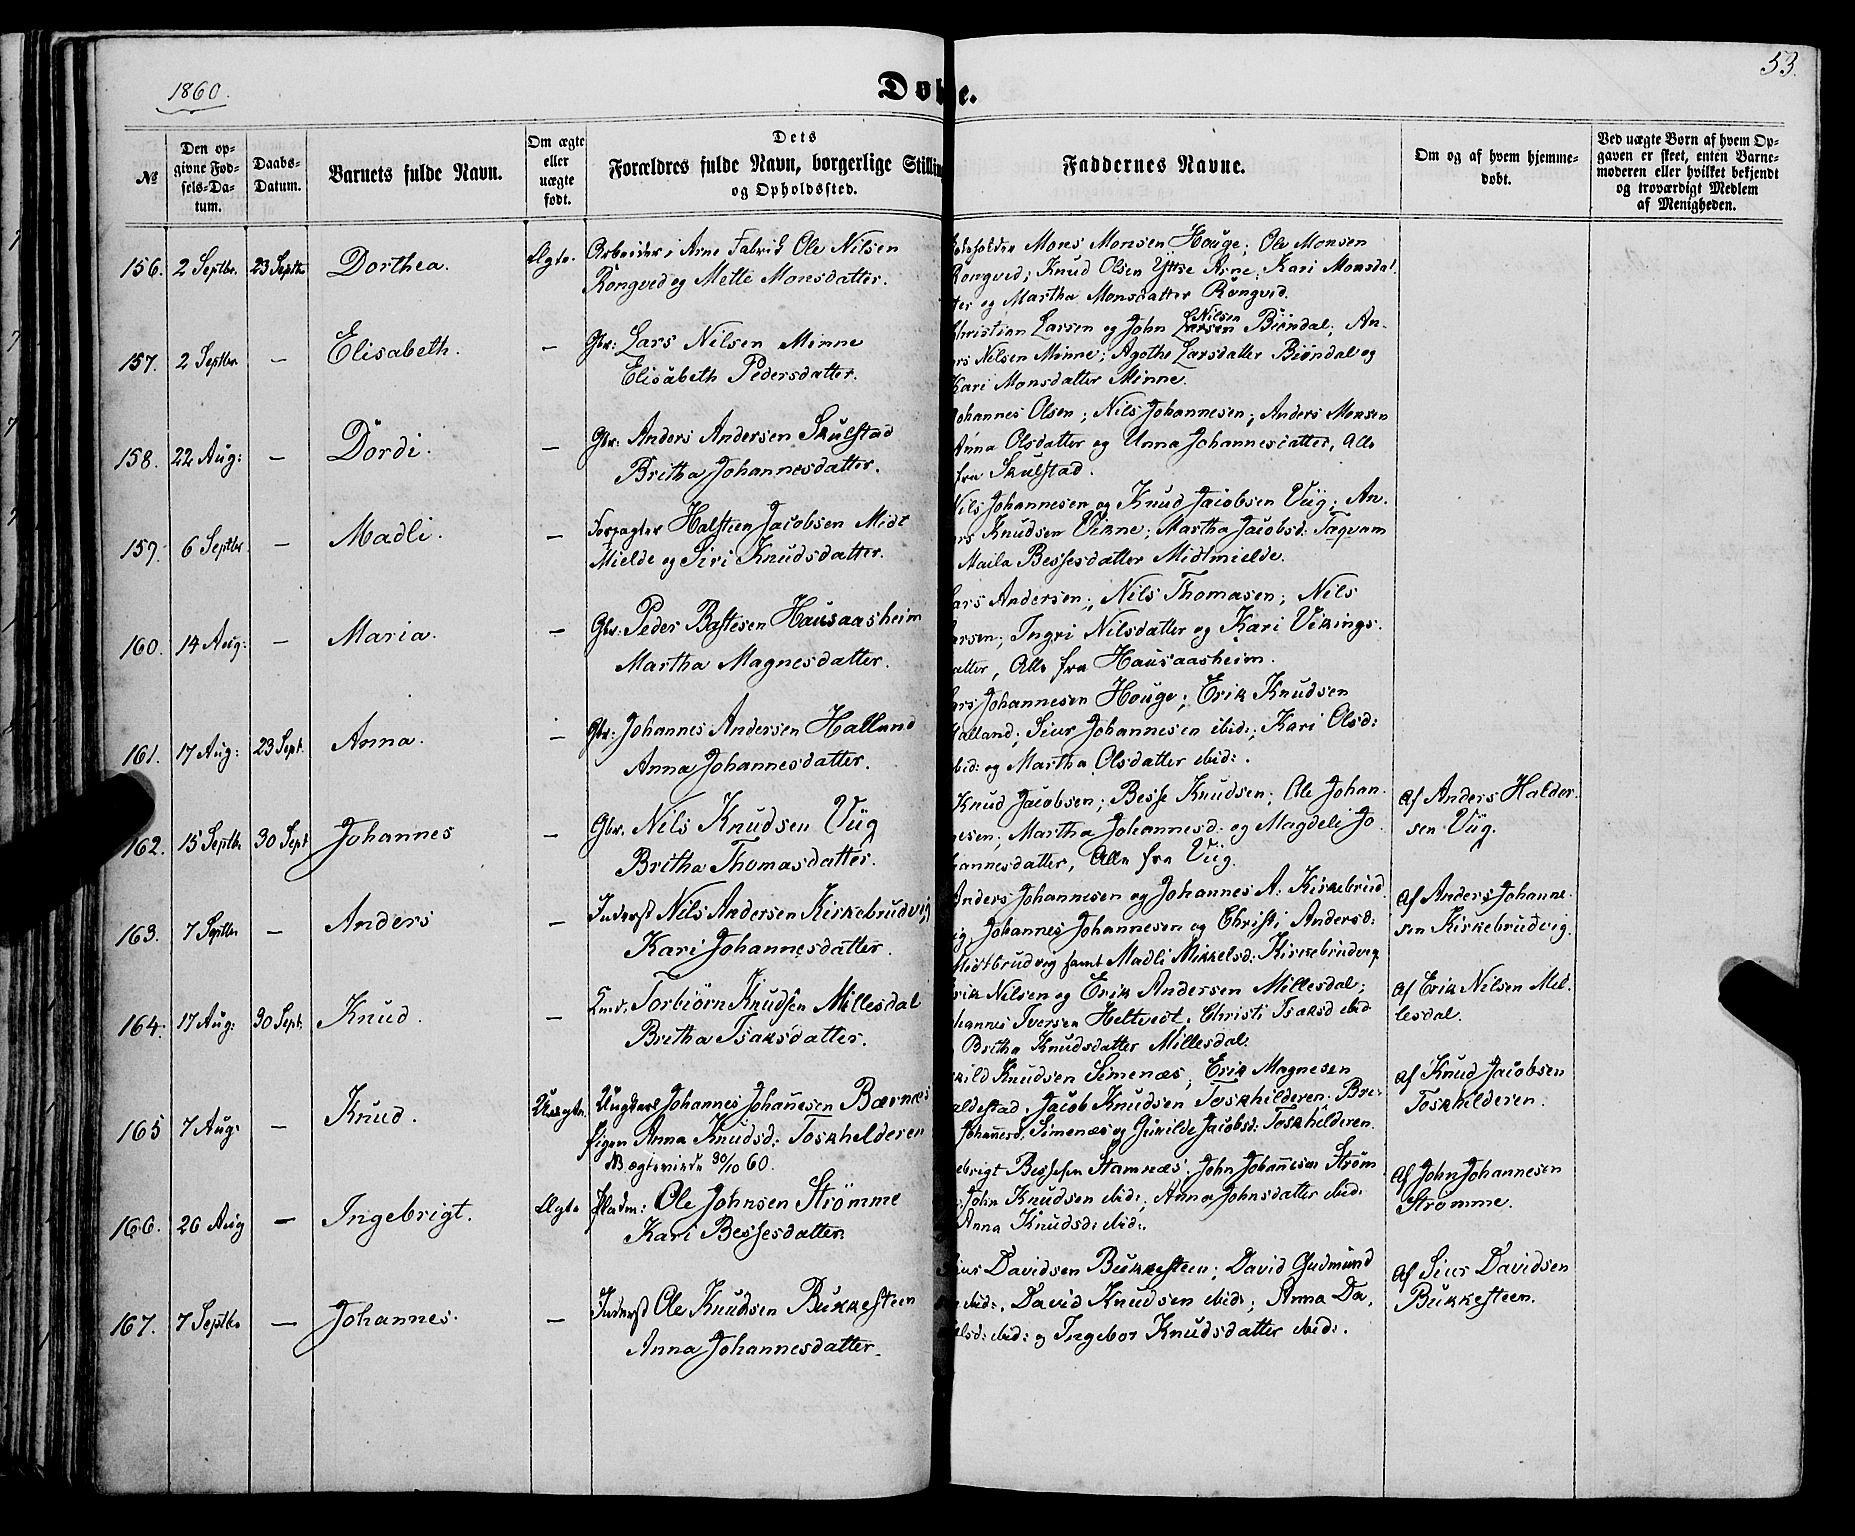 1860.
Døbte.
53.
№
Den op-
givne Fød-
sels-Da-
tum.
Daabs-
Datum.
Barnets fulde Navn.
Om ægte
eller
uægte
født.
Dets
Forældres fulde Navn, borgerlige Stilling
og Opholdssted.
Faddernes Navne.
Om og af hvem hjemme-
døbt.
Ved uægte Børn af hvem Op-
gaven er skeet, enten Barne-
moderen eller hvilket bekjendt
og troværdigt Medlem
af Menigheden.
156. 2 Septbr. 23 Septbr Dorthea. Ægte. Arbeider i Arne Fabrik Ole Nilsen
Rongved og Mette Monsdatter.
Mons Monsen Houge; Ole Monsen
Rongved; Knud Olsen Yttre Arne; Kari Monsdat
ter og Martha Monsdatter Rongved.
157. 2 Septbr — Elisabeth. — Gbr: Lars Nilsen Minne
Elisabeth Pedersdatter.
Christian Larsen og John Larsen Nilsen Biøndal; An-
ers Nilsen Minne; Agothe Larsdatter Biøndal og
Kari Monsdatter Minne.
158. 22 Aug: — Dordi. — Gbr: Anders Andersen Skulstad
Britha Johannesdatter.
Johannes Olsen; Nils Johannesen; Anders Monsen
Anna Olsdatter og Unna Johannesdatter, Alle
fra Skulstad.
159. 6 Septbr — Madli. — Forpagter Halsteen Jacobsen Midt
Mielde og Siri Knudsdatter.
Nils Johannesen og Knud Jacobsen Viig; An-
ers Knudsen Vikne; Martha Jacobsd: Taqvam
Maila Bessesdatter Midtmielde.
160. 14 Aug: — Maria. — Gbr. Peder Bastesen Hausaasheim
Martha Magnesdatter.
Lars Andersen; Nils Thomasen; Nils
Larsen; Ingri Nilsdatter og Kari Vikings-
datter, Alle fra Hausaasheim.
161. 17 Aug: 23 Sept. Anna. — Gbr: Johannes Andersen Halland
Anna Johannesdatter.
Lars Johannesen Houge; Erik Knudsen
Halland; Siur Johannesen ibid:; Kari Olsd:
ibid: og Martha Olsdatter ibid:.
162. 15 Septbr 30 Sept Johannes — Gbr. Nils Knudsen Viig
Britha Thomasdatter.
Knud Jacobsen; Besse Knudsen; Ole Johan-
nesen; Martha Johannesd: og Magdeli Jo-
hannesdatter, Alle fra Viig.
Af Anders Haldor-
sen Viig.
163. 7 Septbr — Anders — Inderst Nils Andersen Kirkebrudvig
Kari Johannesdatter.
Anders Johannesen og Johannes A: Kirkebrud
vig Johannes Johannesen og Christi Andersd:
Midtbrudvig samt Madli Mikkelsd: Kirkebrudvig
Af Anders Johanne-
sen Kirkebrudvig.
164. 17 Aug: 30 Sept. Knud. — Torbiørn Knudsen Millesdal
Britha Isaksdatter.
Erik Nilsen og Erik Andersen Millesdal;
Johannes Iversen Heltvedt, Christi Isaksd ibid
Britha Knudsdatter Millesdal.
Af Erik Nilsen Mil-
lesdal.
165 7 Aug: — Knud. Uægte. Ungkarl Johannes Johanesen Bærnæs
Pigen Anna Knudsd: Toskhelderen
NB ægteviede 30/10 60.
Knudsen Simenæs; Erik Magnesen
Jacob Knudsen Toskhilderen; Bri-
Johanesd. Simenæs og Gurilde Jacobsd: Toskhilderen.
Af Knud Jacobsen
Toskhilderen.
166. 26 Aug — Ingebrigt. Ægte Pladm: Ole Johnsen Strømme
Kari Bessesdatter
Ingebrigt Bessesen Stamnæs; John Johanesen Strøm
John Knudsen ibid:, Anna Johnsdatter ibid:
Anna Knudsd: ibid:.
Af John Johannesen
Strømme.
167. 7 Septbr — Johannes. — Inderst Ole Knudsen Bukkesteen
Anna Johannesdatter.
Siur Davidsen Bukkesteen; David Gudmund
ibid:, David Knudsen ibid:, Anna Da-
ibid: og Ingebor Knudsdatter ibid:.
Af Siur Davidsen
Bukkesteen.